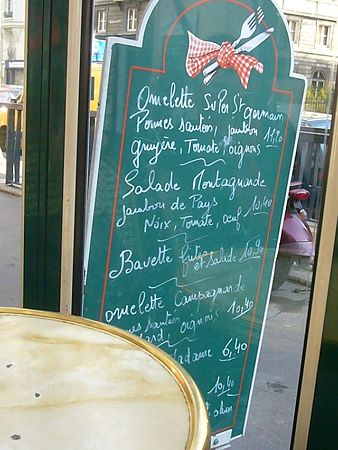 Omelette Super St germain
Pommes sautées, jambon
gruyère, Tomate, oignons 11,20
Salade Montagnarde
jambon de Pays 10,40
Noix, Tomate, œuf
Bavette frites et salade 10,9
omelette Campagnarde
mes sautées 10,40
ard, oignons
adame 6,40
10,40